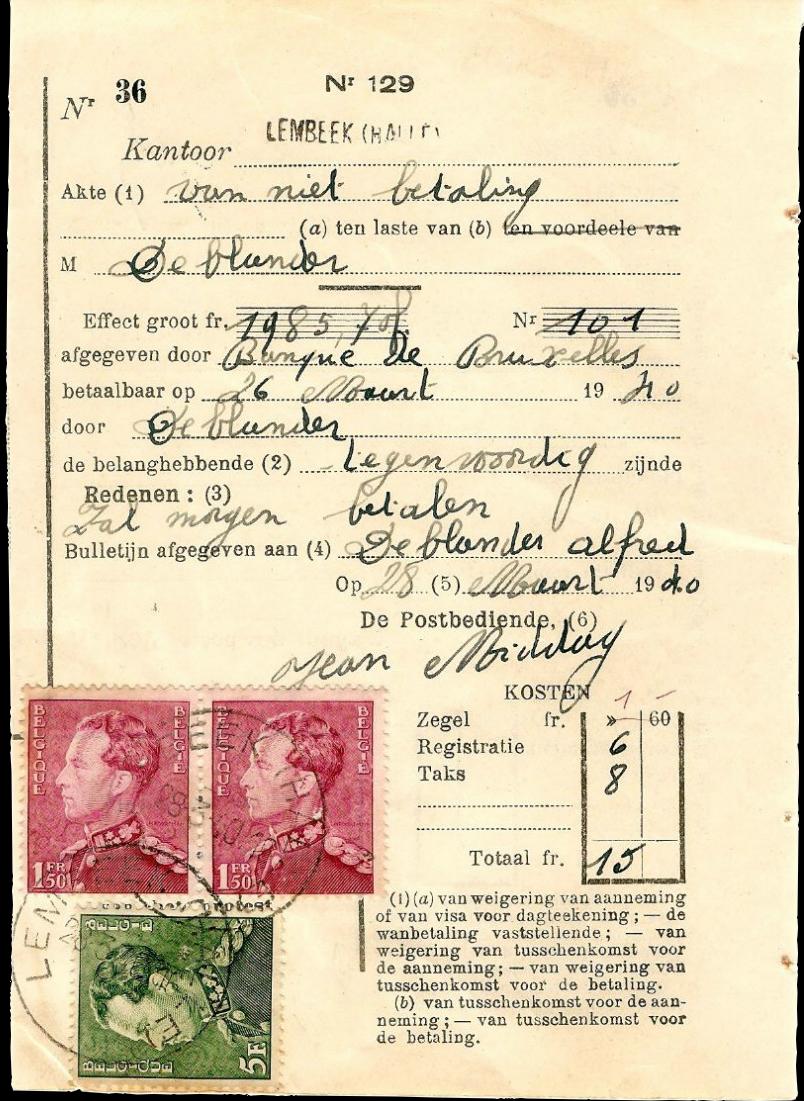 Nr 36
Nr 129
LEMBEEK (HALLE)
Kantoor
Akte (1) van niet betaling
(a) ten laste van (b) ten voordeele van
M De blander
Effect groot fr. 1985,70f Nr 101
afgegeven door Banque de Bruxelles
betaalbaar op 26 Maart 19 40
door De blander
de belanghebbende (2) tegenwoordig zijnde
Redenen : (3)
Zal morgen betalen
Bulletijn afgegeven aan (4) De blander alfred
Op 28 (5) Maart 19 40
De Postbediende, (6)
Jean Midday
KOSTEN
1 -
Zegel fr. » 60
Registratie 6
Taks 8
Totaal fr. 15
(1) (a) van weigering van aanneming
of van visa voor dagteekening ; — de
wanbetaling vaststellende ; — van
weigering van tusschenkomst voor
de aanneming ; — van weigering van
tusschenkomst voor de betaling.
(b) van tusschenkomst voor de aan-
neming ; — van tusschenkomst voor
de betaling.
BELGIQUE BELGIE
1FR50
BELGIQUE BELGIE
1FR50
protest
BELGIE
BELGIQUE
5F